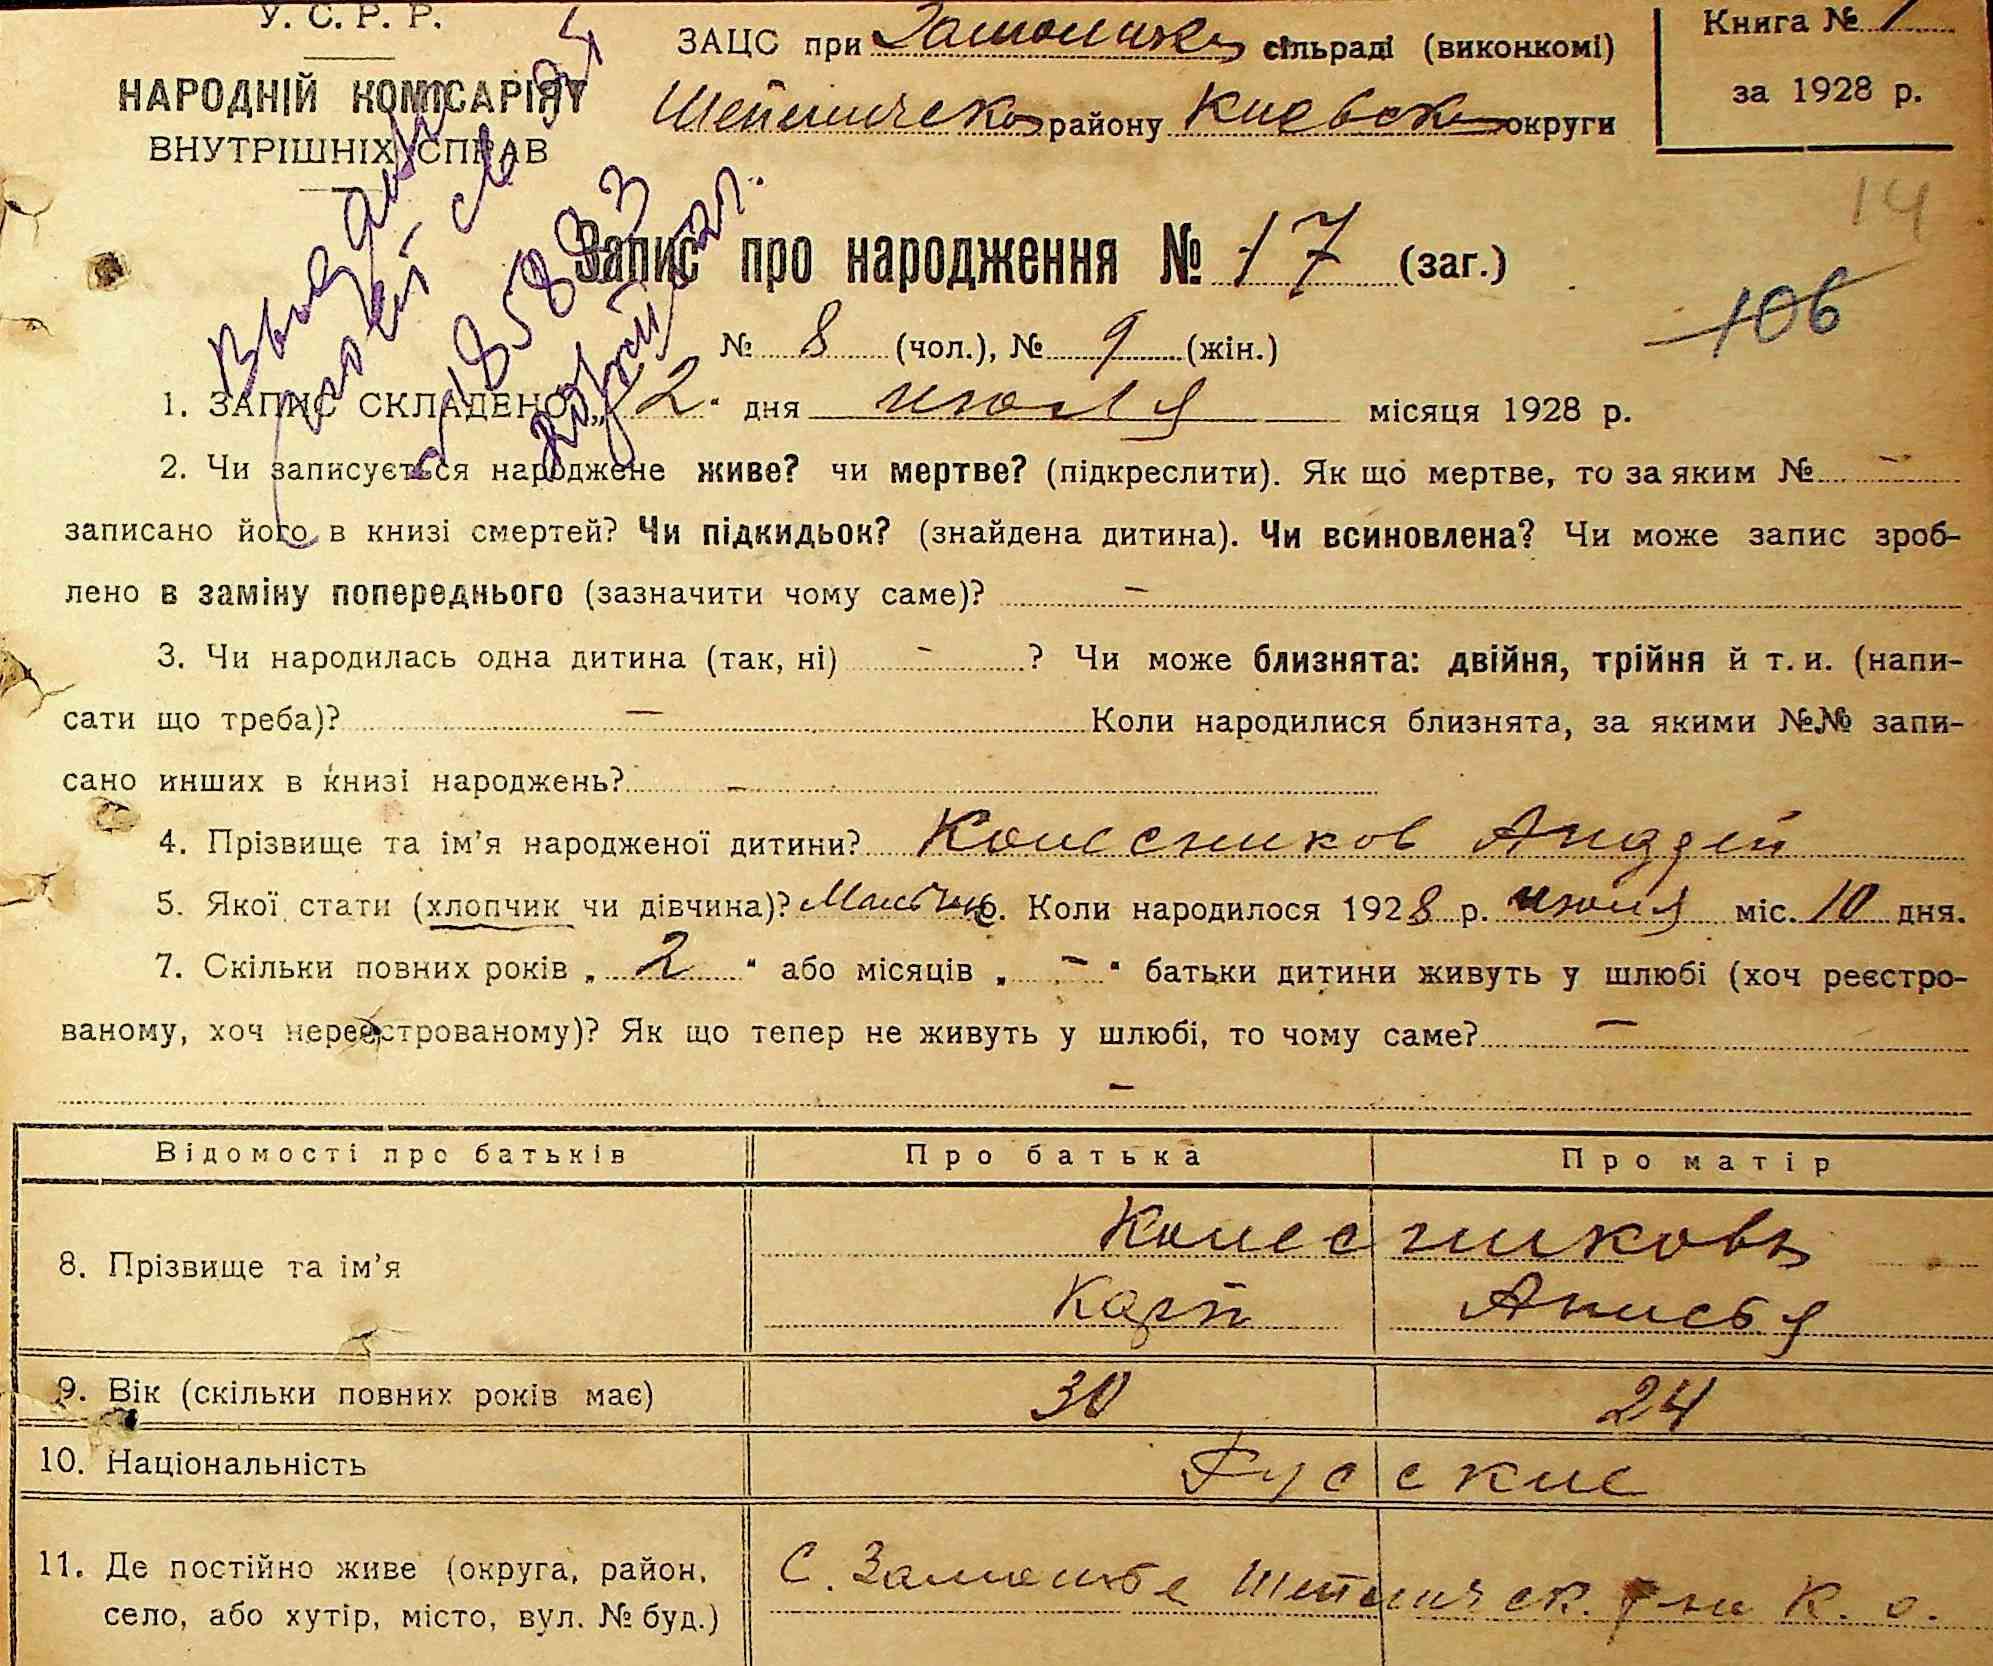 У. С. Р. Р.
НАРОДНІЙ КОМІСАРІЯТ
ВНУТРІШНІХ СПРАВ
ЗАЦС при сільраді (виконкомі)
району Киевско округи
Книга № 1
за 1928 р.
14
Запис про народження № 17 (заг.)
106
№ 8 (чол.), № 9 (жін.)
1. ЗАПИС СКЛАДЕНО „ 2 “ дня июля місяця 1928 р.
2. Чи записується народжене живе? чи мертве? (підкреслити). Як що мертве, то за яким № –
записано його в книзі смертей? Чи підкидьок? (знайдена дитина). Чи всиновлена? Чи може запис зроб-
лено в заміну попереднього (зазначити чому саме)? –
3. Чи народилась одна дитина (так, ні) – ? Чи може близнята: двійня, трійня й т. и. (напи-
сати що треба)? – Коли народилися близнята, за якими №№ запи-
сано инших в книзі народжень? –
4. Прізвище та ім’я народженої дитини? Колесников Андрей
5. Якої стати (хлопчик чи дівчина)? Мальчик 6. Коли народилося 1928 р. июля міс. 10 дня.
7. Скільки повних років „ 2 “ або місяців „ – “ батьки дитини живуть у шлюбі (хоч реєстро-
ваному, хоч нереєстрованому)? Як що тепер не живуть у шлюбі, то чому саме? –
–
Відомості про батьків Про батька Про матір
8. Прізвище та ім’я Колесниковы
Карп Анисья
9. Вік (скільки повних років має) 30 24
10. Національність Русские
11. Де постійно живе (округа, район, С. Замошье р-на К. о.
село, або хутір, місто, вул. № буд.)